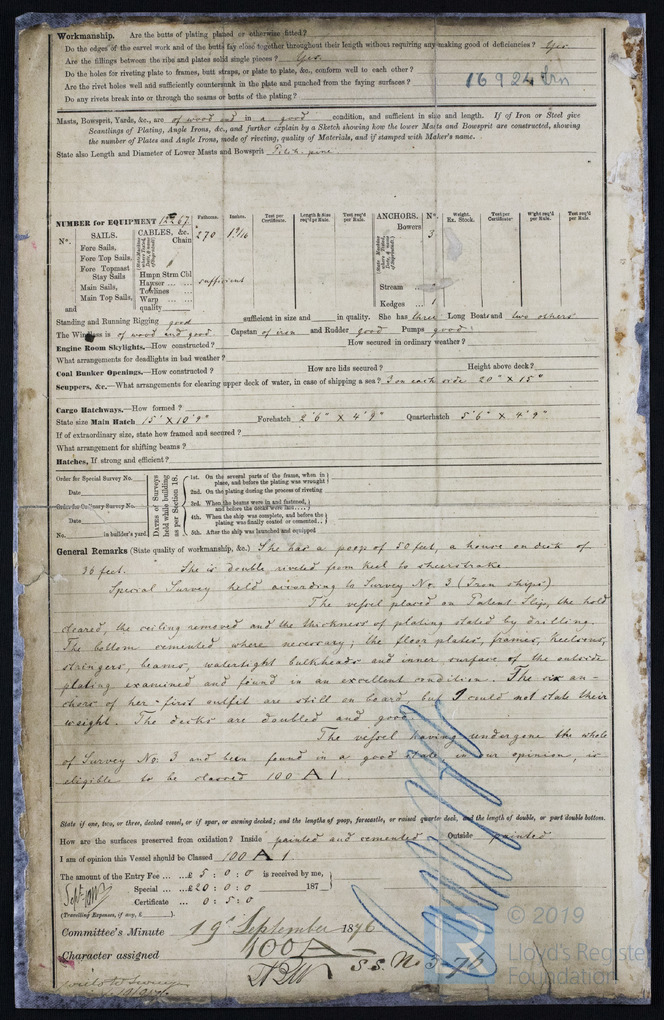 Workmanship. Are the butts of plating planed or otherwise fitted?
Do the edges of the carvel work and of the butts fay close together throughout their length without requiring any making good of deficiencies? Yes
Are the fillings between the ribs and plates solid single pieces? Yes
Do the holes for riveting plate to frames, butt straps, or plate to plate, &c., conform well to each other?
Are the rivet holes well and sufficiently countersunk in the plate and punched from the faying surfaces?
16924 Irn
Do any rivets break into or through the seams or butts of the plating?
Masts, Bowsprit, Yards, &c., are of wood and in a good condition, and sufficient in size and length. If of Iron or Steel give
Scantlings of Plating, Angle Irons, &c., and further explain by a Sketch showing how the lower Masts and Bowsprit are constructed, showing
the number of Plates and Angle Irons, mode of riveting, quality of Materials, and if stamped with Maker's name.
State also Length and Diameter of Lower Masts and Bowsprit Pitch pine
NUMBER for EQUIPMENT 12267 Fathoms. Inches. Test per Certificate. Length & Size req'd per Rule. Test req'd per Rule. ANCHORS. No. Weight. Ex. Stock. Test per Certificate. W'ght req'd per Rule. Test req'd per Rule.
No. SAILS. CABLES, &c. Chain 270 1 9/16 Bowers 3
Fore Sails,
Fore Top Sails,
Fore Topmast
Stay Sails Hmpn Strm Cbl
Main Sails, Hawser ... sufficient
Towlines ... Stream
Main Top Sails, Warp ...
and quality Kedges
Standing and Running Rigging good sufficient in size and in quality. She has three Long Boats and two others
The Windlass is of wood and good Capstan of iron and Rudder good Pumps good
Engine Room Skylights.—How constructed? How secured in ordinary weather?
What arrangements for deadlights in bad weather?
Coal Bunker Openings.—How constructed? How are lids secured? Height above deck?
Scuppers, &c.—What arrangements for clearing upper deck of water, in case of shipping a sea? 3 on each side 20" x 15"
Cargo Hatchways.—How formed?
State size Main Hatch 15' x 10'9" Forehatch 2'6" x 4'9" Quarterhatch 5'6" x 4'9"
If of extraordinary size, state how framed and secured?
What arrangement for shifting beams?
Hatches, If strong and efficient?
Order for Special Survey No.
Date
Order for Ordinary Survey No.
Date
No. in builder's yard
DATES of Surveys held while building as per Section 18.
1st. On the several parts of the frame, when in place, and before the plating was wrought
2nd. On the plating during the process of riveting
3rd. When the beams were in and fastened, and before the decks were laid....
4th. When the ship was complete, and before the plating was finally coated or cemented..
5th. After the ship was launched and equipped
General Remarks (State quality of workmanship, &c.) She has a poop of 50 feet, a house on deck of
36 feet. She is double riveted from keel to sheerstrake
Special Survey held according to Survey No. 3 (Iron ships)
The vessel placed on Patent Slip, the hold
cleared, the ceiling removed and the thickness of plating stated by drilling.
The bottom cemented where necessary; the floor plates, frames, keelsons,
stringers, beams, watertight bulkheads and inner surface of the outside
plating examined and found in an excellent condition. The six an-
chors of her first outfit are still on board, but I could not state their
weight. The decks are doubled and good
The vessel having undergone the whole
of Survey No. 3 and been found in a good state, in our opinion, is
eligible to be classed 100 A 1.
State if one, two, or three, decked vessel, or if spar, or awning decked; and the lengths of poop, forecastle, or raised quarter deck, and the length of double, or part double bottom.
How are the surfaces preserved from oxidation? Inside painted and cemented Outside painted
I am of opinion this Vessel should be Classed 100 A 1
The amount of the Entry Fee ... £ 5 : 0 : 0 is received by me,
Special ... £20 : 0 : 0 187
Certificate ... 0 : 5 : 0
(Travelling Expenses, if any, £ ).
Committee's Minute 19th September 1876
Character assigned 100A
S.S. No 3-76
© 2019
Lloyd's Register
Foundation